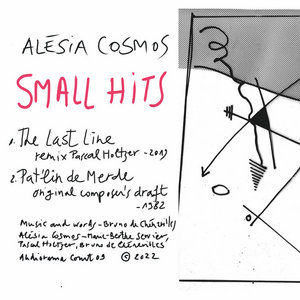 ALÉSIA COSMOS
SMALL HiTS
1. The Last Line
remix Pascal Holtzer - 2019
2. Pat'lin de Merde
original composer's draft
- 1982
Music and works - Bruno de Chénerilles
Alésia Cosmos - Marie-Berthe Servier,
Pascal Holtzer, Bruno de Chénerilles
Audiorama Count 09 © 2022